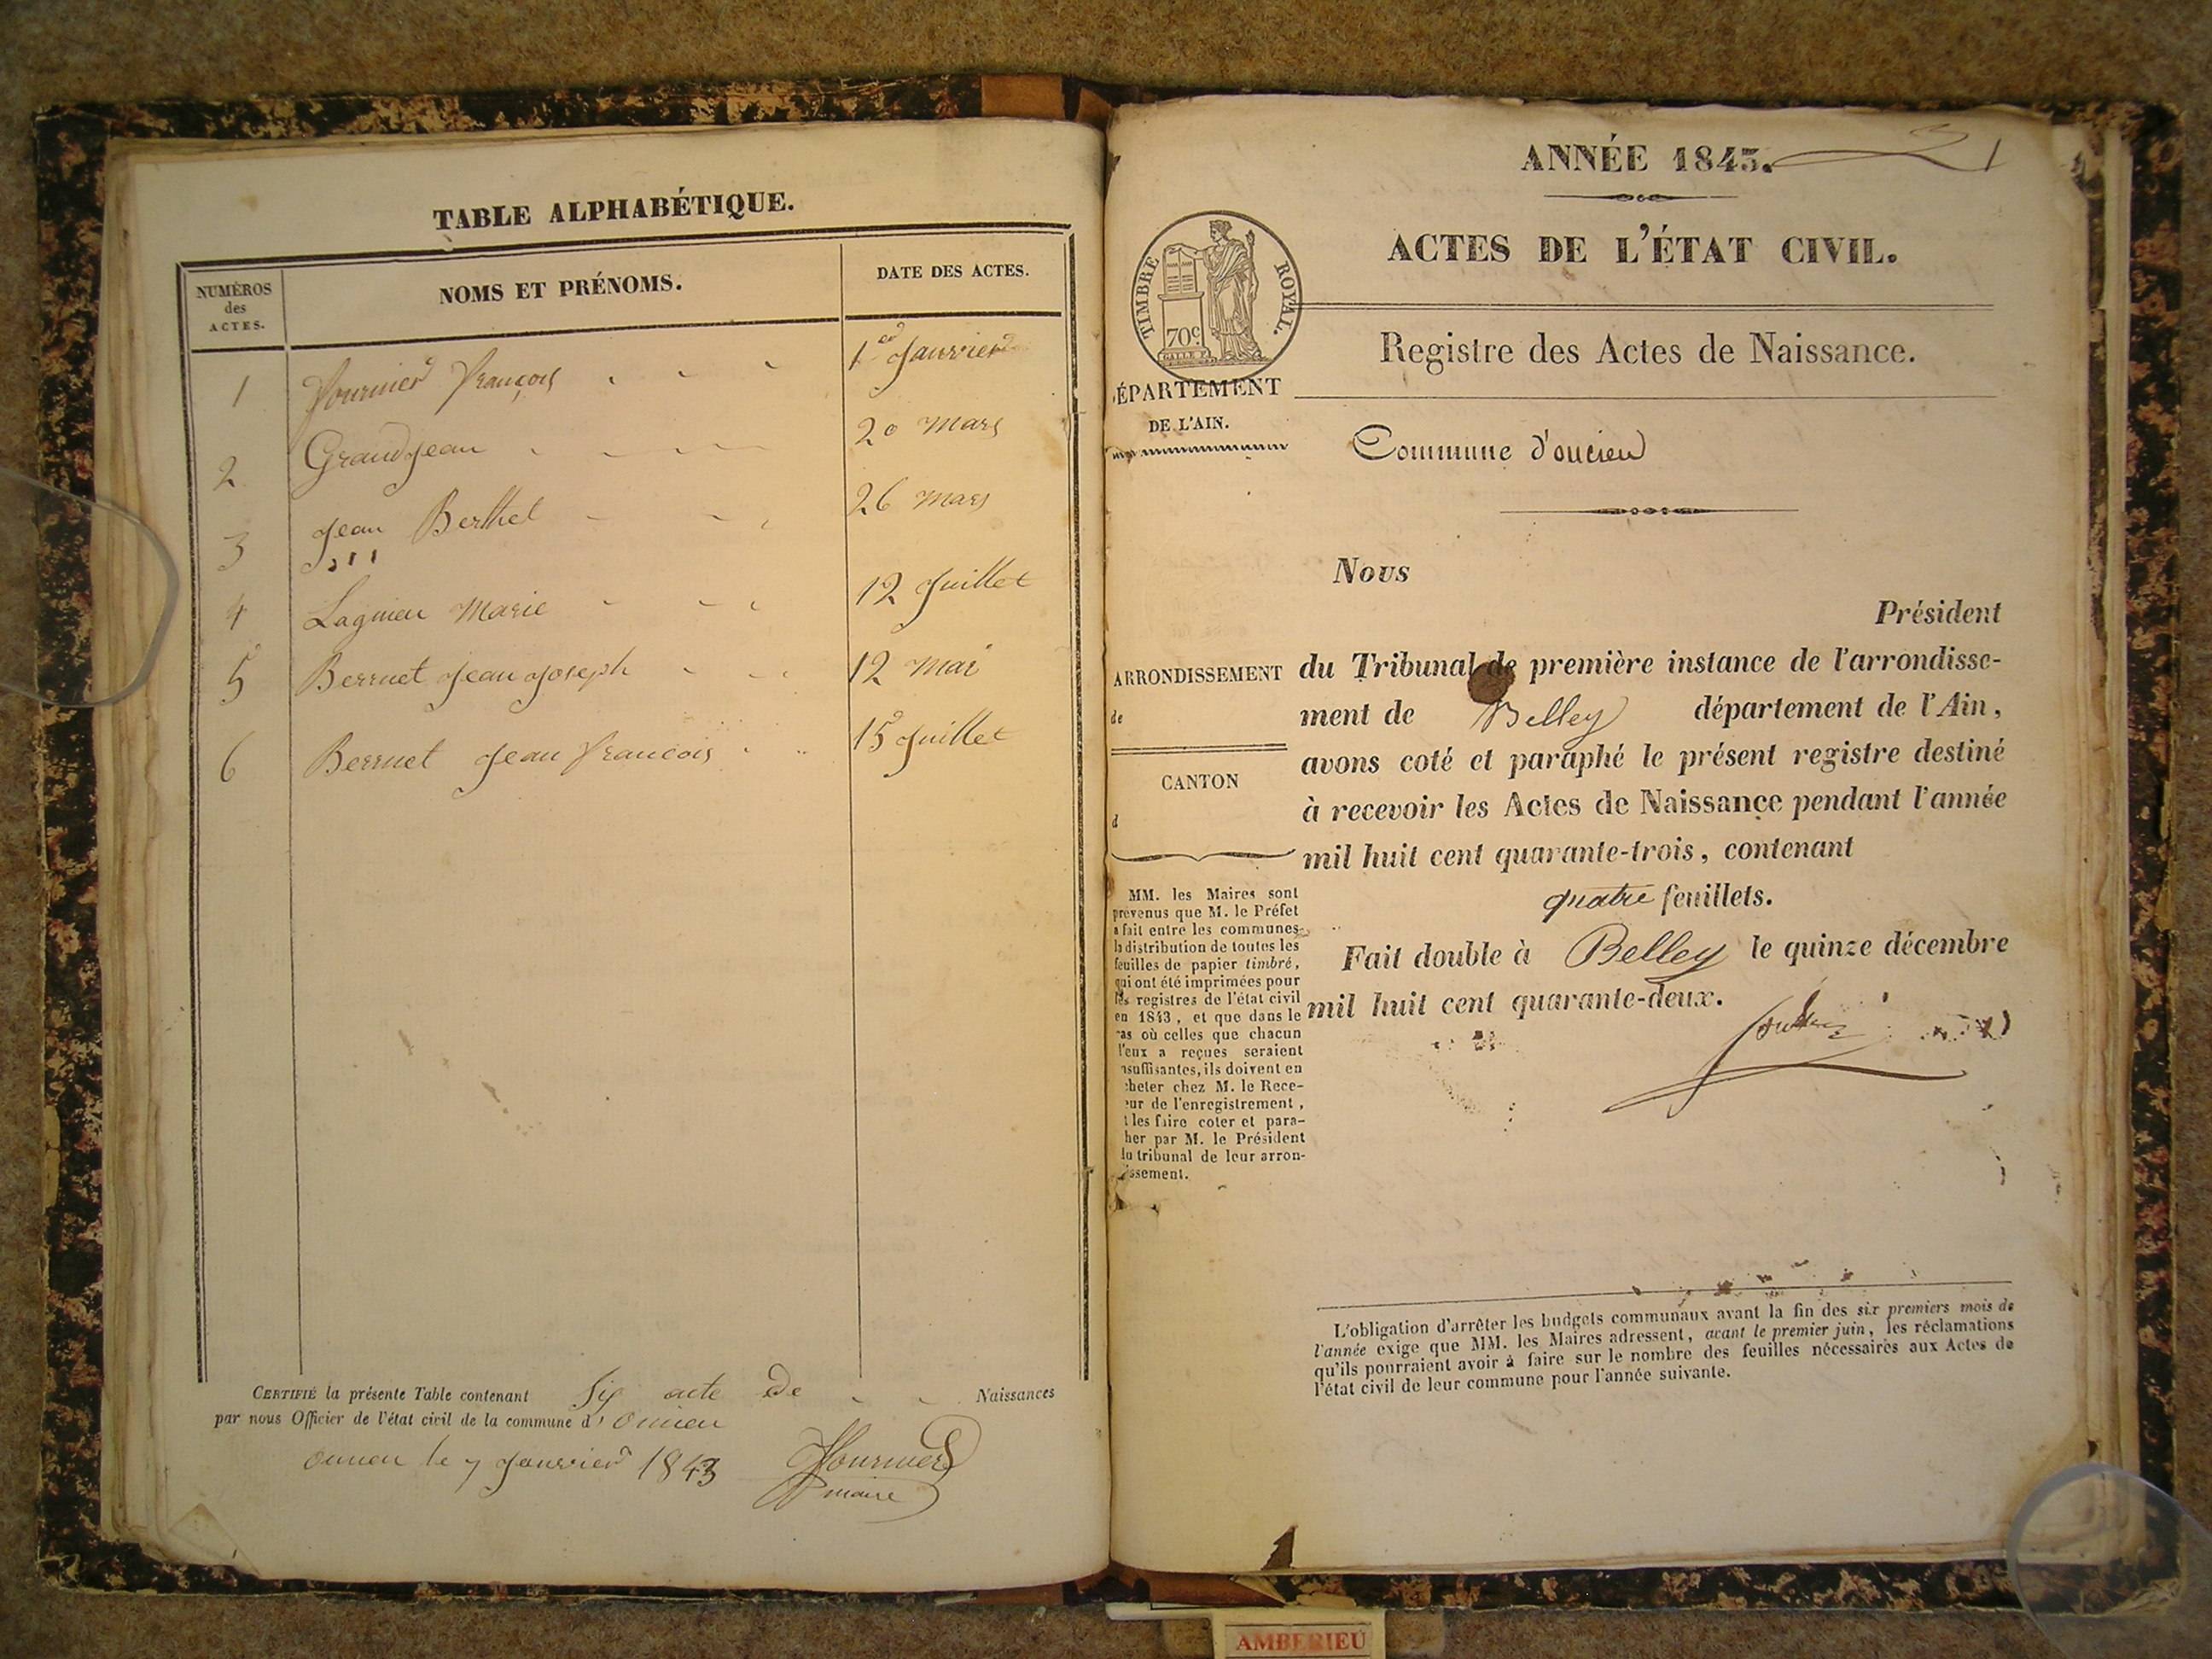 TABLE ALPHABÉTIQUE.
NUMÉROS
des
ACTES.
NOMS ET PRÉNOMS.
DATE DES ACTES.
1 Fournier François 1er Janvier
2 Grandjean 20 Mars
3 Jean Berthet 26 Mars
4 Lagnieu Marie 12 Juillet
5 Berruet Jean Joseph 12 Mai
6 Berruet Jean Francois 15 Juillet
CERTIFIÉ la présente Table contenant Six acte De Naissances
par nous Officier de l'état civil de la commune d' Oncieu
Oncieu le 7 Janvier 1843 Fournier
maire
ANNÉE 1843. 1
ACTES DE L'ÉTAT CIVIL.
TIMBRE ROYAL.
70c
Registre des Actes de Naissance.
ÉPARTEMENT
DE L'AIN.
Commune d'oncieu
Nous
Président
ARRONDISSEMENT
de
CANTON
d
du Tribunal de première instance de l'arrondisse-
ment de Belley département de l'Ain,
avons coté et paraphé le présent registre destiné
à recevoir les Actes de Naissance pendant l'année
mil huit cent quarante-trois, contenant
quatre feuillets.
Fait double à Belley le quinze décembre
mil huit cent quarante-deux.
MM. les Maires sont
prévenus que M. le Préfet
a fait entre les communes
la distribution de toutes les
feuilles de papier timbré,
qui ont été imprimées pour
les registres de l'état civil
en 1843, et que dans le
as où celles que chacun
l'eux a reçues seraient
nsuffisantes, ils doivent en
cheter chez M. le Rece-
eur de l'enregistrement,
t les faire coter et para-
her par M. le Président
du tribunal de leur arron-
issement.
L'obligation d'arrêter les budgets communaux avant la fin des six premiers mois de
l'année exige que MM. les Maires adressent, avant le premier juin, les réclamations
qu'ils pourraient avoir à faire sur le nombre des feuilles nécessaires aux Actes de
l'état civil de leur commune pour l'année suivante.
AMBERIEU